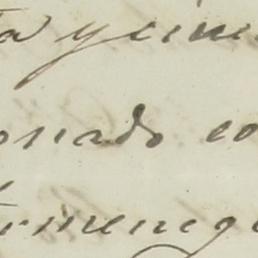 ta y cinc
onado co
rmeneg